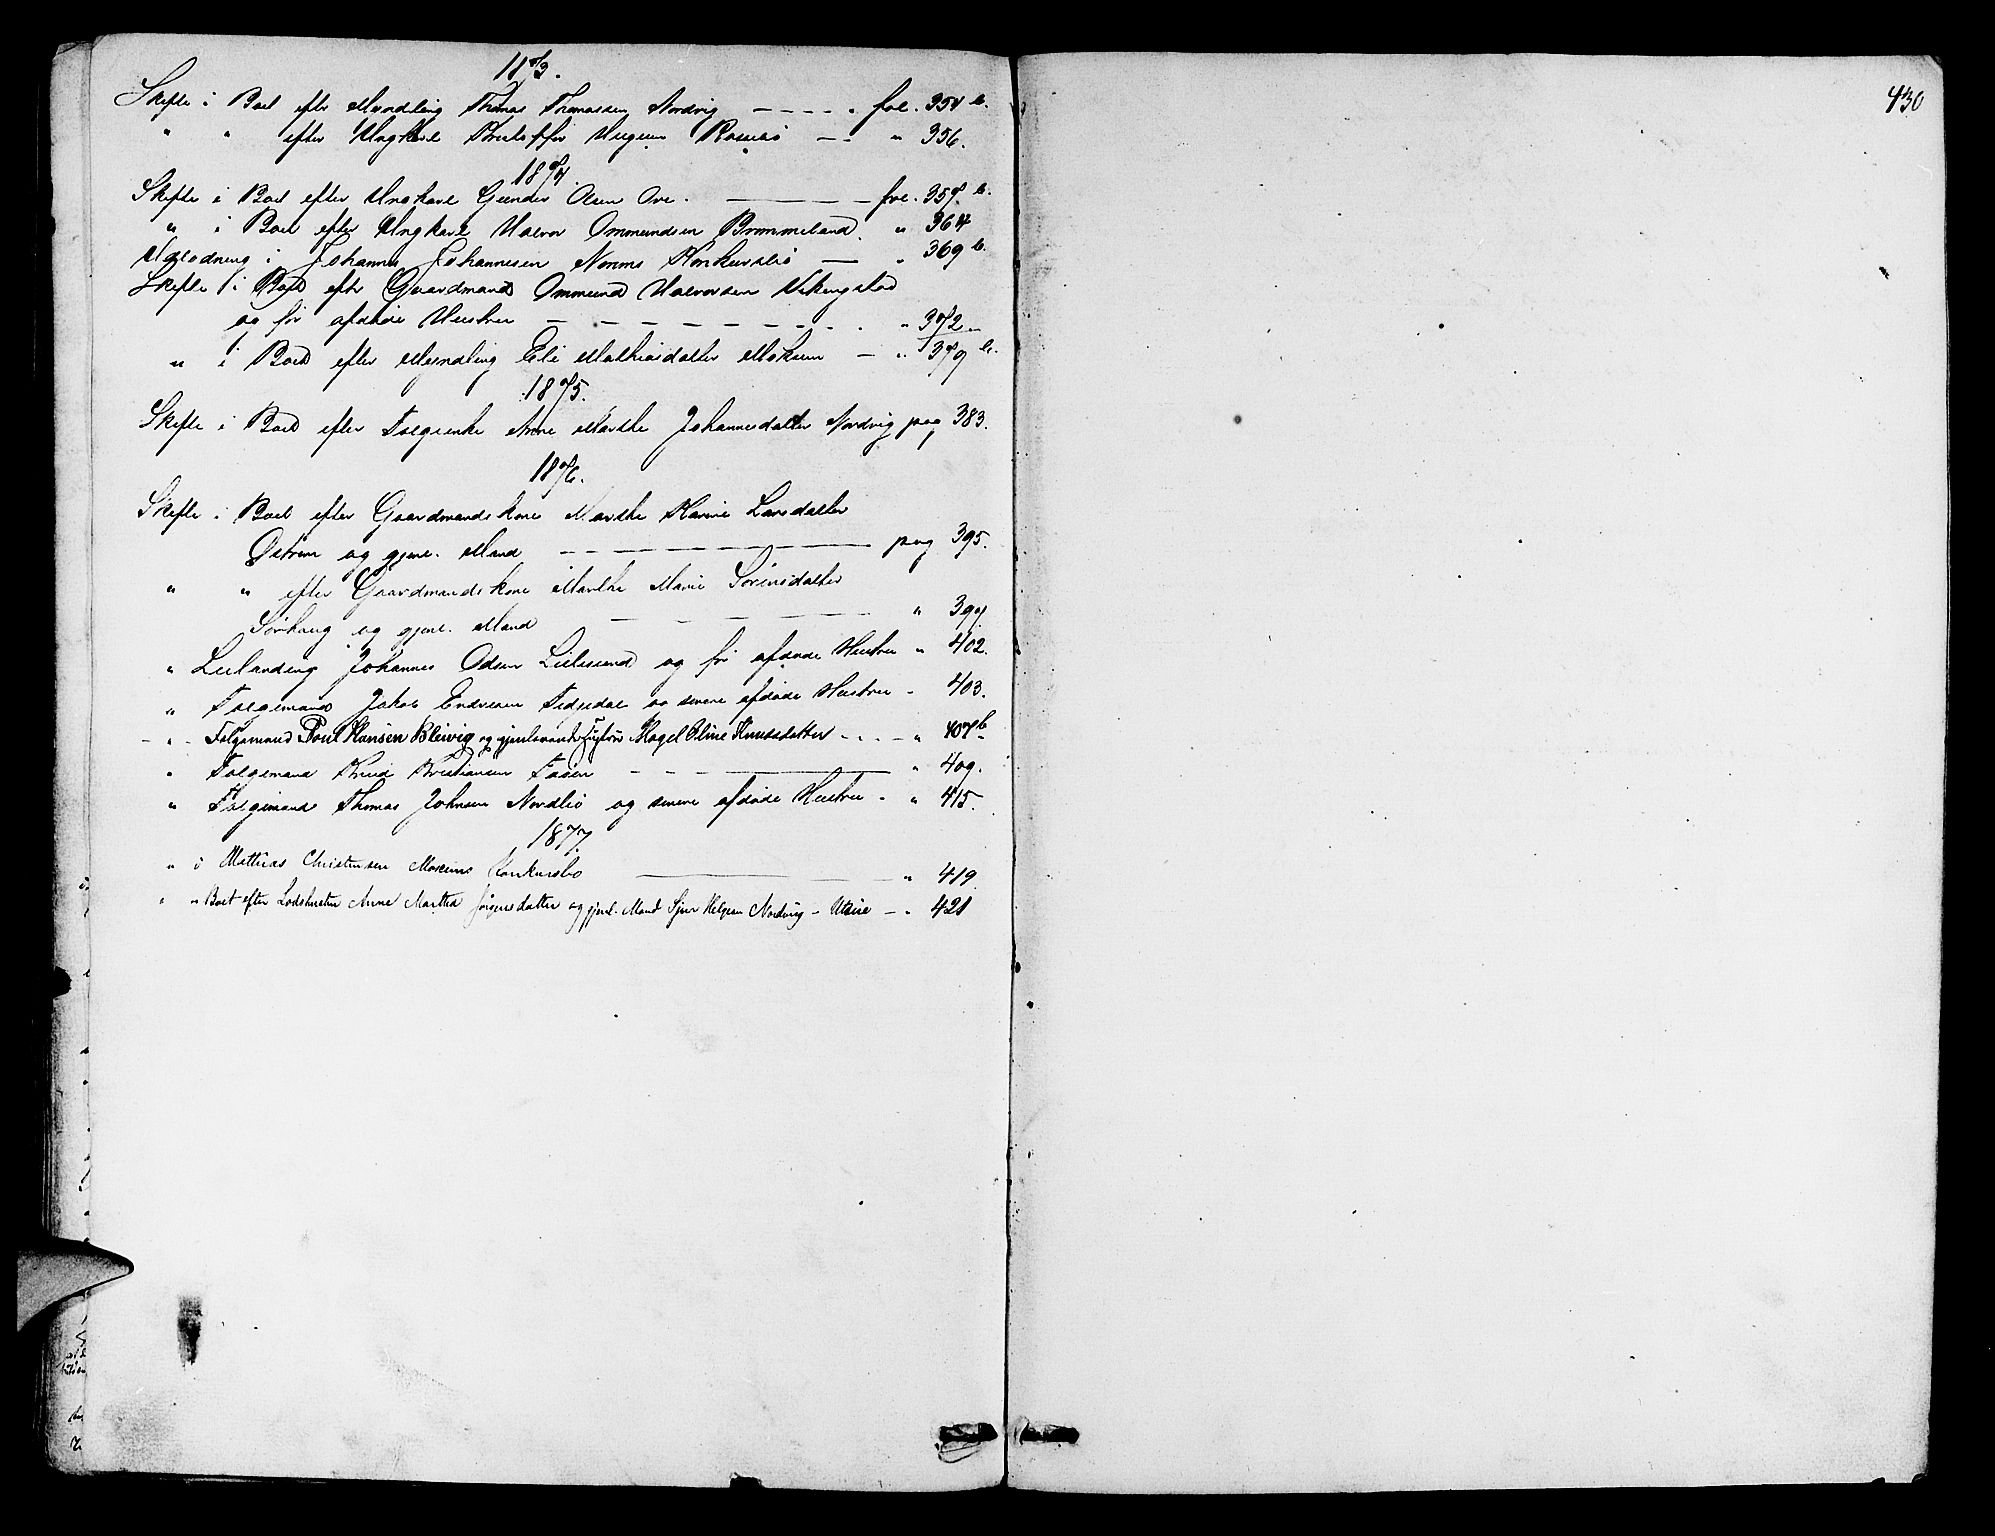 1873.
Skifte i Boet efter Myndling Thomas Thomassen Nordvig — — — — . fol. 354 b.
" " efter Ungkarl Kristoffer Rossebø — — " 356.
1874.
Skifte i Boet efter Ungkarl Gunder Olsen Ove. — — — — fol. 357 b.
" i Boet efter Ungkarl Halvor Ommundsen Brommeland. " 364
Udlodning i Johannes Johannesen Nonms Konkursbo — " 369 b.
Skifte i Boet efter Gaardmand Ommund Halvorsen Vikingstad
og før afdøde Hustru — — — — — — — — — . " 372
" i Boet efter Myndling Eli Mathiasdatter Moksem — " 379 b.
1875.
Skifte i Boet efter Folgeenke Anne Marthe Johannesdatter Nordvig pag 383.
1876.
Skifte i Boet efter Gaardmandskone Marthe Karine Larsdatter
Østrem og gjenl. Mand — — — — — — — pag 395.
" " efter Gaardmandskone Marthe Marie Sørensdatter
Sørhaug og gjenl. Mand — — — — — " 397.
" Leilænding Johannes Odsen Lillesund og før afdøde Hustru " 402.
" Folgemand Jakob Endresen og senere afdøde Hustru - 403.
- " - Folgemand Poul Hansen Bleivig og gjenlevende Hustru Magel Oline Knudsdatter - . . - " 407 b
" Folgemand Knud Kristiansen Fosen — — — — — " 409.
" Folgemand Thomas Johnsen Nordbø og senere afdøde Hustru - " 415.
1877.
" i Mathias Christensen Moksems Konkursbo — — — " 419.
" " Boet efter Lodshustru Anne Martha Jørgensdatter og gjenl. Mand Sjur Helgesen Nordvig - Utsire — " 421
430